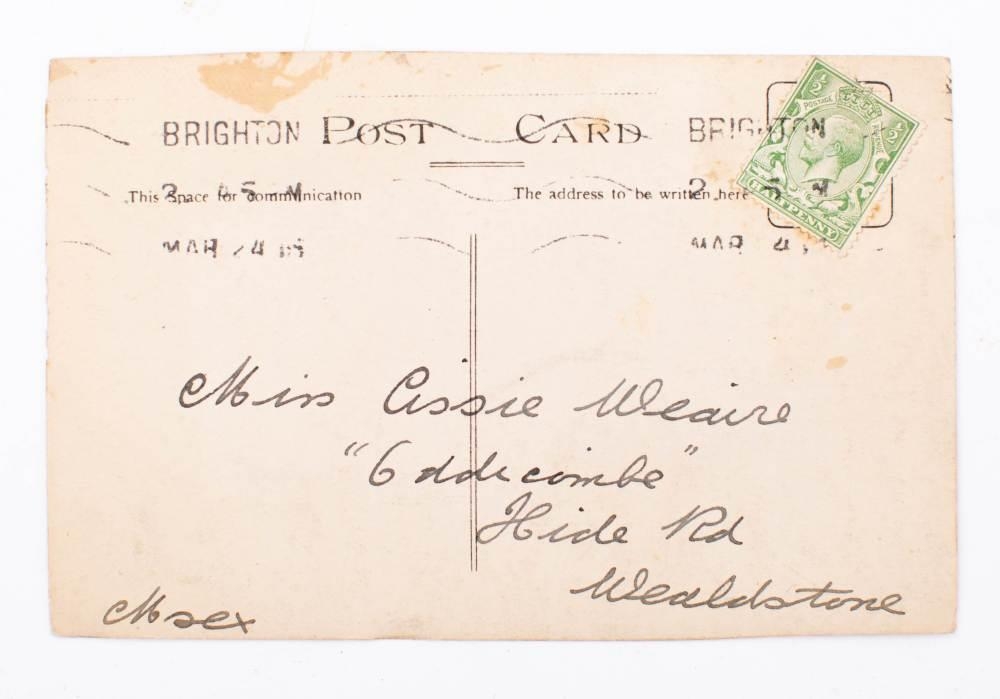 BRIGHTON POST CARD BRIGHTON
This Space for Communication The address to be written here
MAR 24 MAR 4
½ ½
POSTAGE REVENUE
HALFPENNY
Miss Cissie Weaire
"Oddicombe"
Hide Rd
Wealdstone
Msex